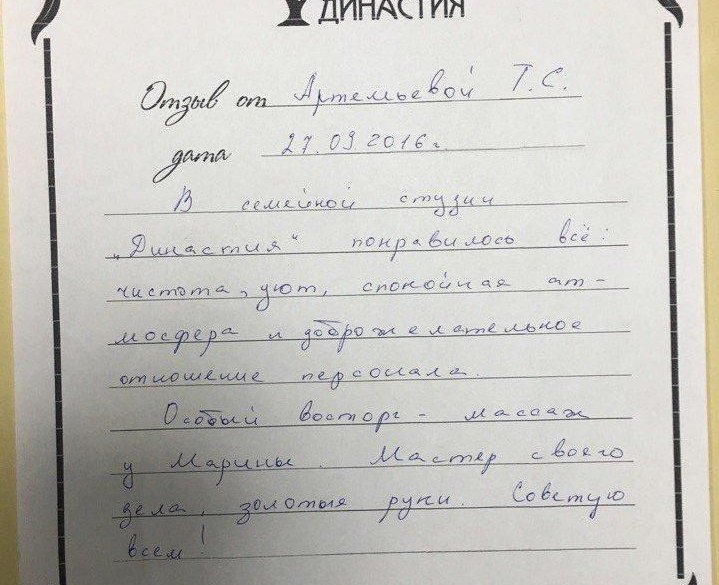 ДИНАСТИЯ
Отзыв от Артемьевой Т.С.
дата 27.09.2016г.
В семейной студии
„Династия“ понравилось всё:
чистота, уют, спокойная ат-
мосфера и доброжелательное
отношение персонала.
Особый восторг - массаж
у Марины. Мастер своего
дела, золотые руки. Советую
всем!